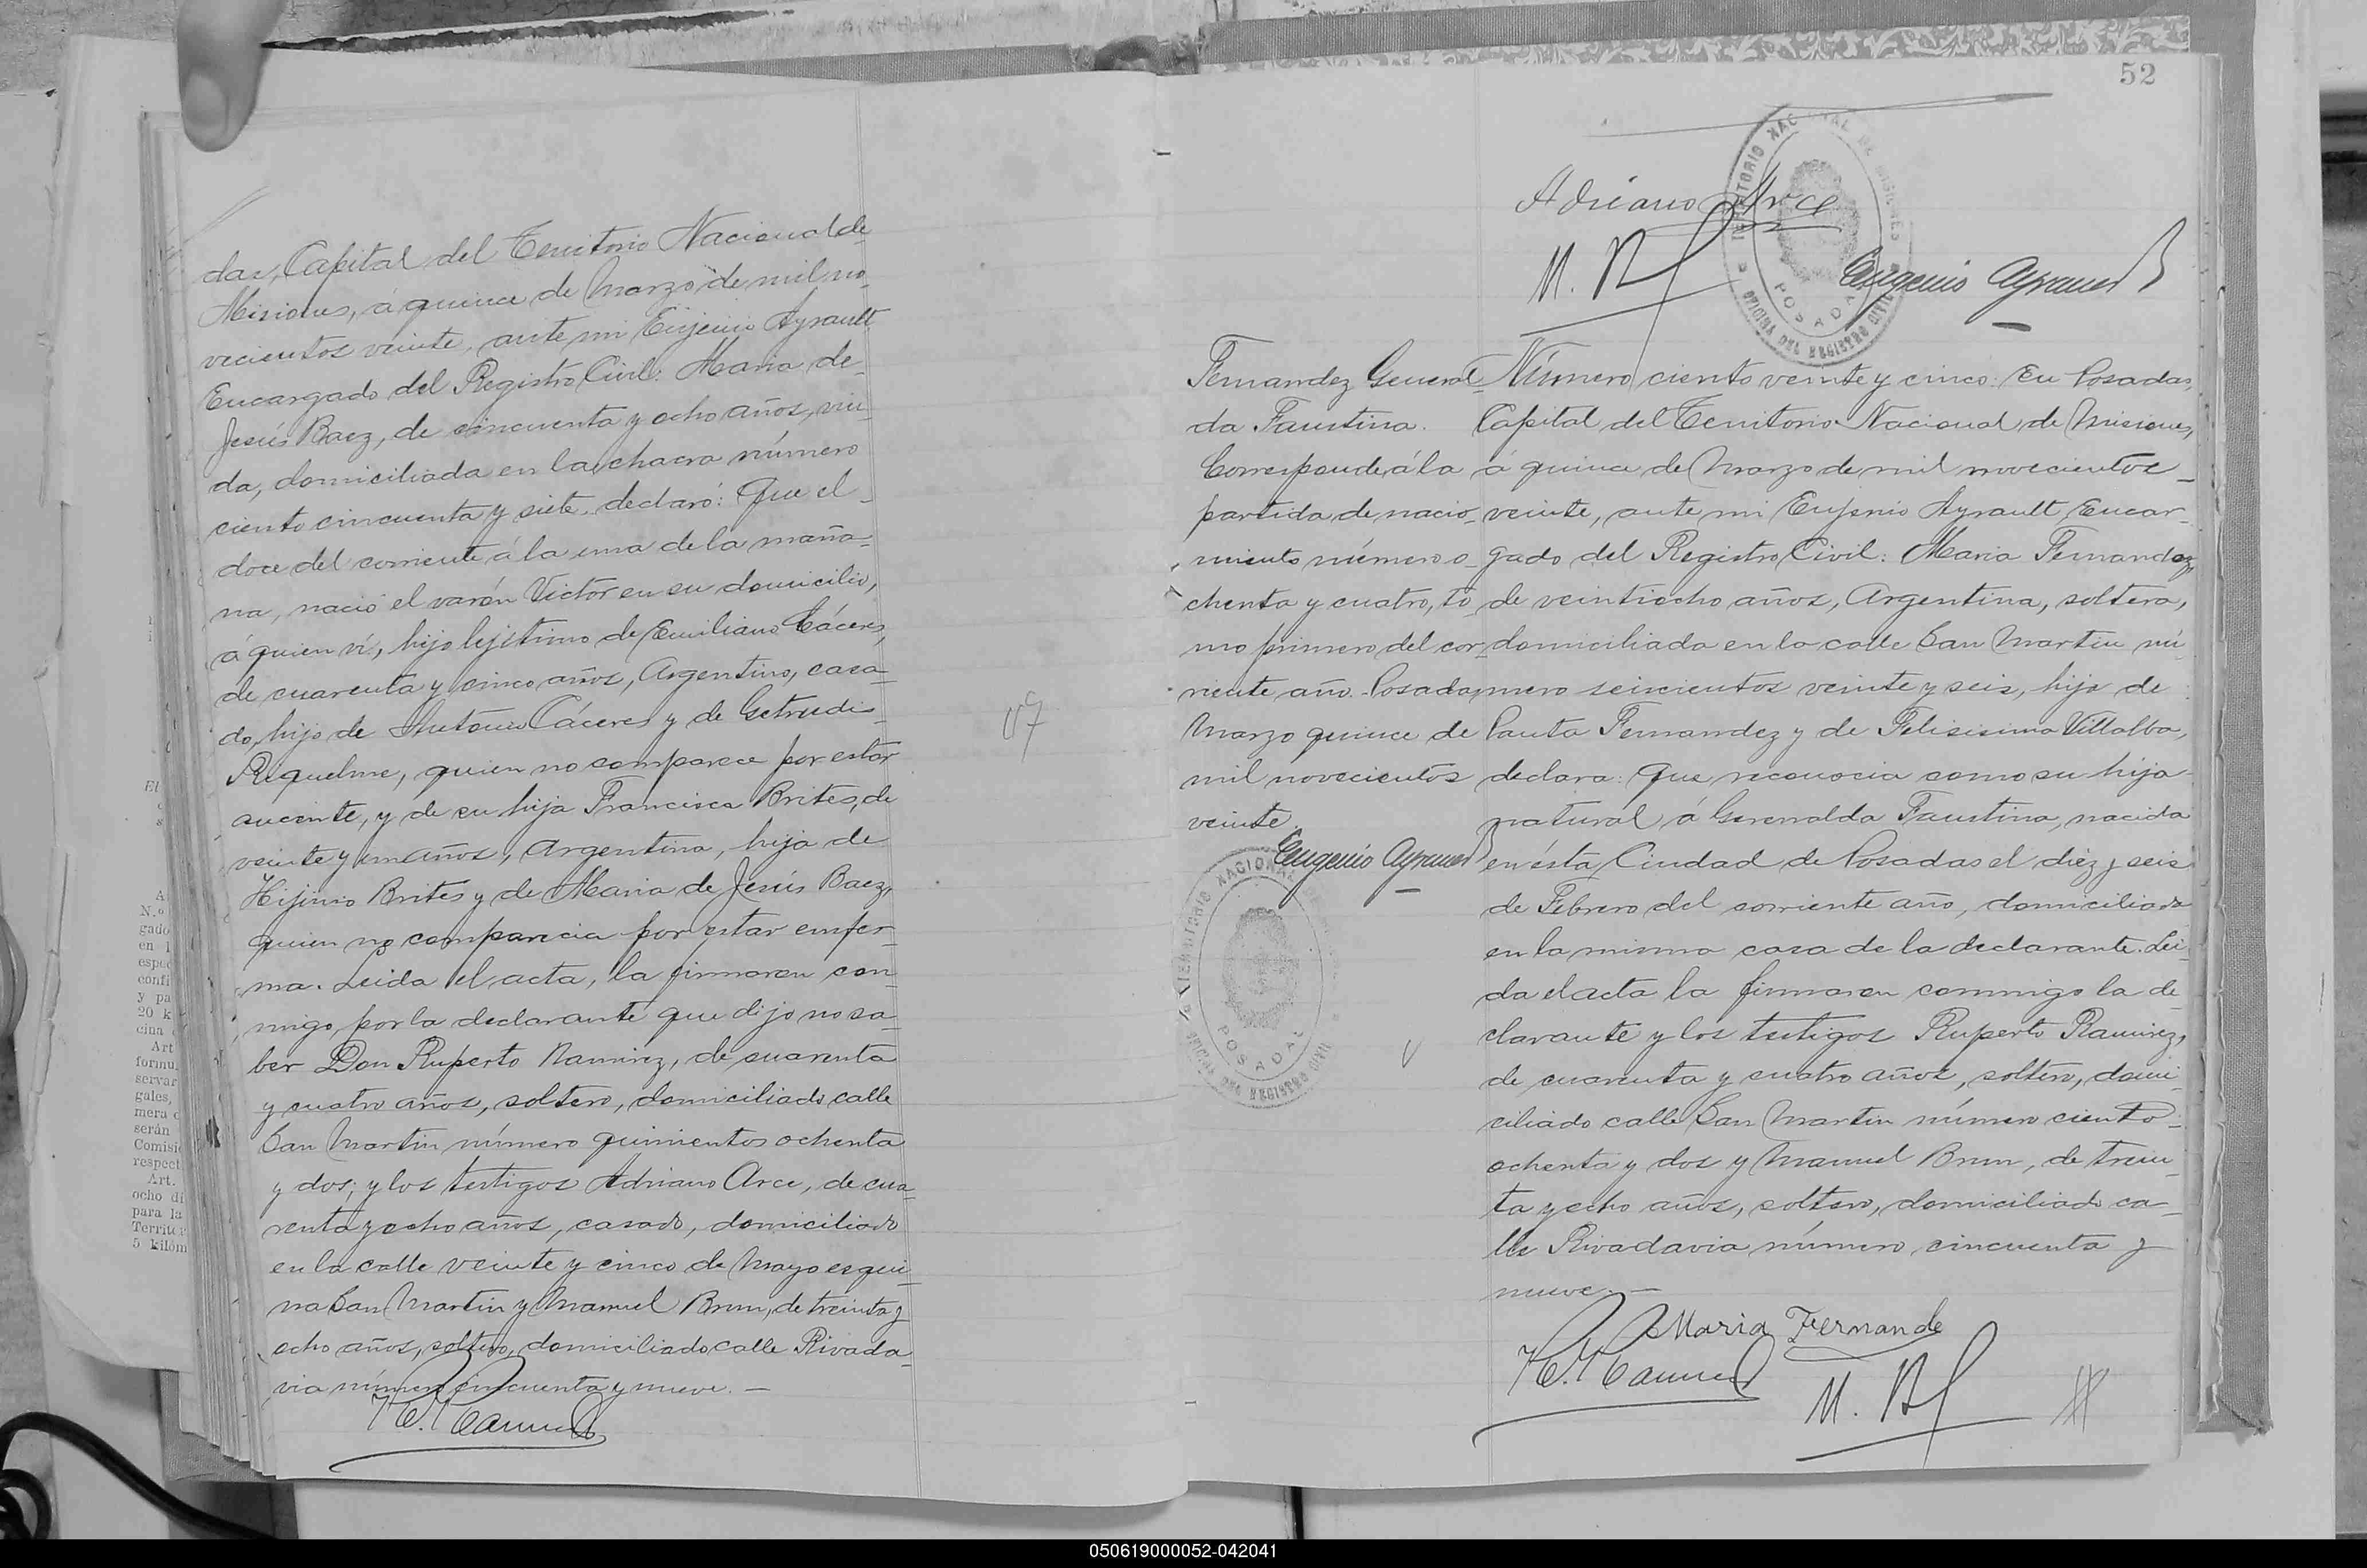 das, Capital del Territorio Nacional de
Misiones, á quince de Marzo de mil no-
vecientos veinte, ante mi Eujenio Ayrault
Encargado del Registro Civil: Maria de-
Jesús Baez, de cincuenta y ocho años, viu-
da, domiciliada en la chacra número
ciento cincuenta y siete, declaró: Que el-
doce del corriente á la una de la maña-
na, nació el varón Victor en su domicilio,
á quien ví, hijo lejítimo de Emiliano Cáceres,
de cuarenta y cinco años, Argentino, casa-
do, hijo de Antonio Cáceres y de Getrudis
Riquelme, quien no comparece por estar
aucente, y de su hija Francisca Brites, de
veinte y un años, Argentina, hija de
Hijinio Brites y de Maria de Jesús Baez,
quien no comparecia por estar enfer-
ma. Leida el acta, la firmaron con-
migo, por la declarante que dijo no sa-
ber Don Ruperto Ramirez, de cuarenta
y cuatro años, soltero, domiciliado calle
San Martin número quinientos ochenta
y dos; y los testigos Adriano Arce, de cua-
renta y ocho años, casado, domiciliado
en la calle veinte y cinco de Mayo esqui-
na San Martin y Manuel Brun, de treinta y
ocho años, soltero, domiciliado calle Rivada-
via número cincuenta y nueve. —
52
Adriano Arce
Eugenio Ayrault
TERRITORIO NACIONAL DE MISIONES
POSADAS
OFICINA DEL REGISTRO CIVIL
Fernandez General-
da Faustina.
Corresponde á la
partida de naci-
miento número o-
chenta y cuatro, to-
mo primero del cor-
riente año. Posadas,
Marzo quince de
mil novecientos
veinte.
Eugenio Ayrault
TERRITORIO NACIONAL DE MISIONES
POSADAS
OFICINA DEL REGISTRO CIVIL
Número ciento veinte y cinco: En Posadas,
Capital del Territorio Nacional de Misiones,
á quince de Marzo de mil novecientos-
veinte, ante mi Eujenio Ayrault, Encar-
gado del Registro Civil: Maria Fernandez,
de veintiocho años, Argentina, soltera,
domiciliada en la calle San Martin nú-
mero seiscientos veinte y seis, hija de
Panta Fernandez y de Felisisima Villalba,
declara: Que reconocia como su hija
natural á Generalda Faustina, nacida
en ésta Ciudad de Posadas el diez y seis
de Febrero del corriente año, domiciliada
en la misma casa de la declarante. Lei-
da el acta la firmaron conmigo la de-
clarante y los testigos Ruperto Ramirez,
de cuarenta y cuatro años, soltero, domi-
ciliado calle San Martin número ciento-
ochenta y dos y Manuel Brun, de trein-
ta y ocho años, soltero, domiciliado ca-
lle Rivadavia número cincuenta y
nueve. —
Maria Fernande
050619000052-042041